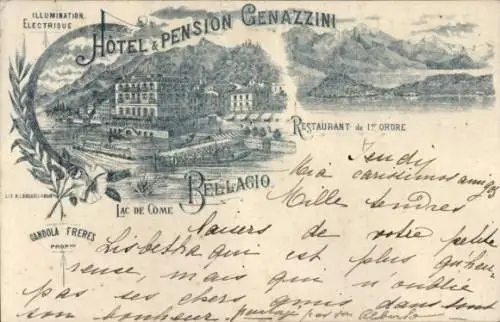 ILLUMINATION
ELECTRIQUE
HÔTEL & PENSION GENAZZINI
RESTAURANT de 1er ORDRE
BELLAGIO
LAC DE CÔME
GANDOLA FRERES
PROPres
Jeudi
Mia carissimos amigos
Mille tendres
baisers de votre petite
Lisbetha qui est plus qu'heu
reuse, mais qui n'oublie
pas ses chers amis dans tout
son bonheur. partagé par son Alberto